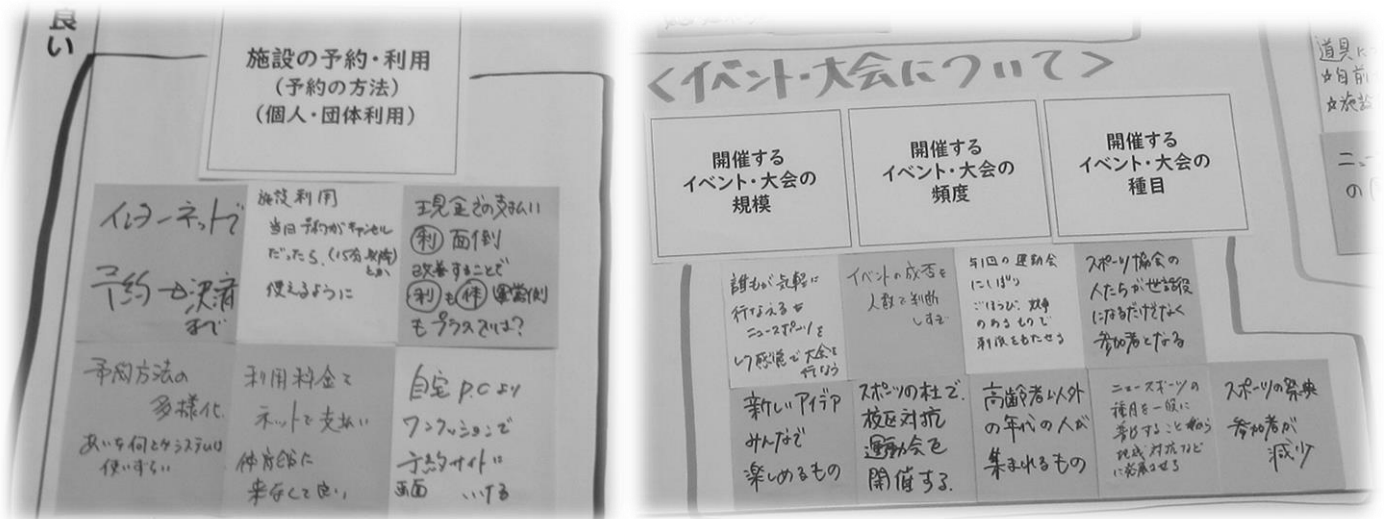 良い
施設の予約・利用
(予約の方法)
(個人・団体利用)
インターネットで
予約→決済
まで
施設利用
当日予約がキャンセル
だったら、(15分以降)
とか
使えるように
現金での支払い
利 面倒
改善することで
利も体運営側
もプラスでは?
予約方法の
多様化
システムは
使いずらい
利用料金を
ネットで支払い
体育館に
来なくて良い
自宅P.Cより
ワンクッションで
予約サイト
画面 いける
<イベント・大会について>
開催する
イベント・大会の
規模
開催する
イベント・大会の
頻度
開催する
イベント・大会の
種目
誰もが気軽に
行なえる
ニュースポーツを
レク感覚で大会を
行なう
イベントの成否を
人数で判断
しすぎ
年1回の運動会
にしぼり
ごほうび、
のあるもので
をもたせる
スポーツ協会の
人たちが世話役
になるだけでなく
参加者となる
新しいアイデア
みんなで
楽しめるもの
スポーツの杜で、
校区対抗
運動会を
開催する。
高齢者以外
の年代の人が
集まれるもの
ニュースポーツの
種目を一般に
普及すること
地域対抗などに
発展させる
スポーツの祭典
参加者が
減少
道具に
☆自前
☆施設
ニュー
の